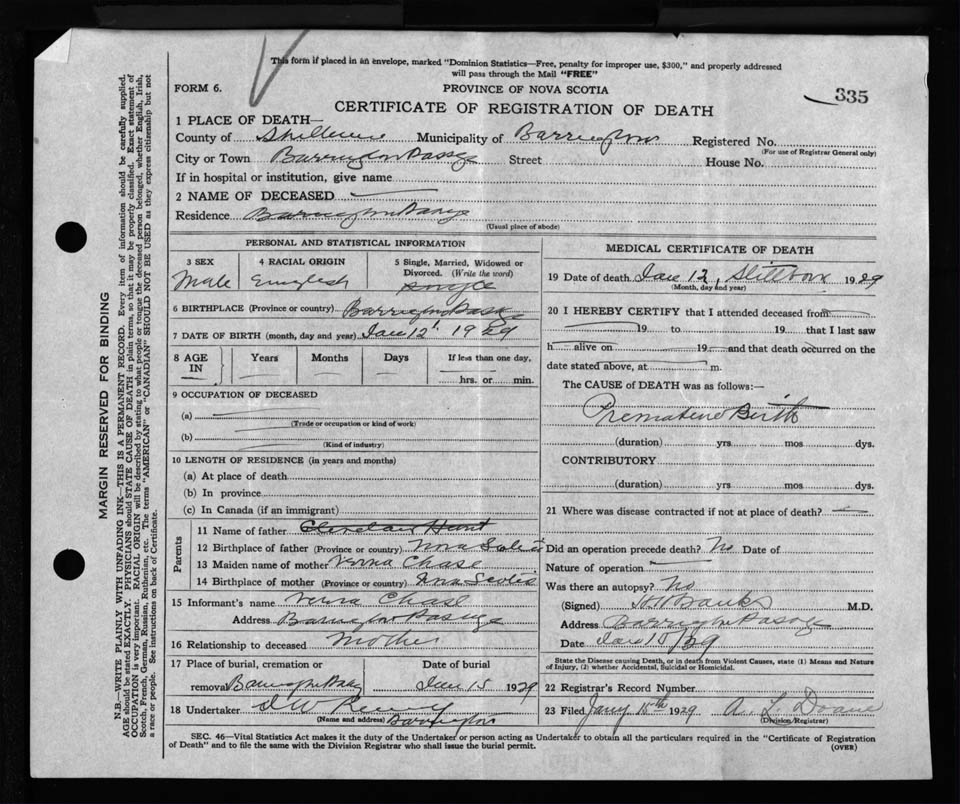 This form if placed in an envelope, marked "Dominion Statistics—Free, penalty for improper use, $300," and properly addressed
will pass through the Mail "FREE"
FORM 6.
PROVINCE OF NOVA SCOTIA
335
CERTIFICATE OF REGISTRATION OF DEATH
1 PLACE OF DEATH—
County of Shelburne Municipality of Barrington Registered No.
(For use of Registrar General only)
City or Town Barrington Passage Street House No.
If in hospital or institution, give name
2 NAME OF DECEASED
Residence Barrington Passage
(Usual place of abode)
PERSONAL AND STATISTICAL INFORMATION
3 SEX 4 RACIAL ORIGIN 5 Single, Married, Widowed or
Divorced. (Write the word)
Male English single
6 BIRTHPLACE (Province or country) Barrington Passage
7 DATE OF BIRTH (month, day and year) Jan 12 1929
8 AGE IN Years Months Days If less than one day,
hrs. or min.
9 OCCUPATION OF DECEASED
(a)
(Trade or occupation or kind of work)
(b)
(Kind of industry)
10 LENGTH OF RESIDENCE (in years and months)
(a) At place of death
(b) In province
(c) In Canada (if an immigrant)
Parents
11 Name of father Hunt
12 Birthplace of father (Province or country) Nova Scotia
13 Maiden name of mother Verna Chase
14 Birthplace of mother (Province or country) Nova Scotia
15 Informant's name Verna Chase
Address Barrington Passage
16 Relationship to deceased Mother
17 Place of burial, cremation or Date of burial
removal Barrington Passage Jan 15 1929
18 Undertaker
(Name and address) Barrington
MEDICAL CERTIFICATE OF DEATH
19 Date of death Jan 12, Stillborn 1929
(Month, day and year)
20 I HEREBY CERTIFY that I attended deceased from
19 to 19 that I last saw
h alive on 19 and that death occurred on the
date stated above, at m.
The CAUSE of DEATH was as follows:—
Premature Birth
(duration) yrs mos dys.
CONTRIBUTORY
(duration) yrs mos dys.
21 Where was disease contracted if not at place of death?
Did an operation precede death? No Date of
Nature of operation
Was there an autopsy? No
(Signed) Banks M.D.
Address Barrington Passage
Date Jan 15/29
State the Disease causing Death, or in death from Violent Causes, state (1) Means and Nature
of Injury, (2) whether Accidental, Suicidal or Homicidal.
22 Registrar's Record Number
23 Filed Jany 15th 1929 A. L. Doane
(Division Registrar)
SEC. 46—Vital Statistics Act makes it the duty of the Undertaker or person acting as Undertaker to obtain all the particulars required in the "Certificate of Registration
of Death" and to file the same with the Division Registrar who shall issue the burial permit.
(OVER)
MARGIN RESERVED FOR BINDING
N.B.—WRITE PLAINLY WITH UNFADING INK—THIS IS A PERMANENT RECORD. Every item of information should be carefully supplied.
AGE should be stated EXACTLY. PHYSICIANS should STATE CAUSE OF DEATH in plain terms, so that it may be properly classified. Exact statement of
OCCUPATION is very important. RACIAL ORIGIN will be described by stating to what people or tongue the deceased person belonged, whether English, Irish,
Scotch, French, German, Russian, Ruthenian, etc. The terms "AMERICAN" or "CANADIAN" SHOULD NOT BE USED as they express citizenship but not
a race or people. See instructions on back of Certificate.